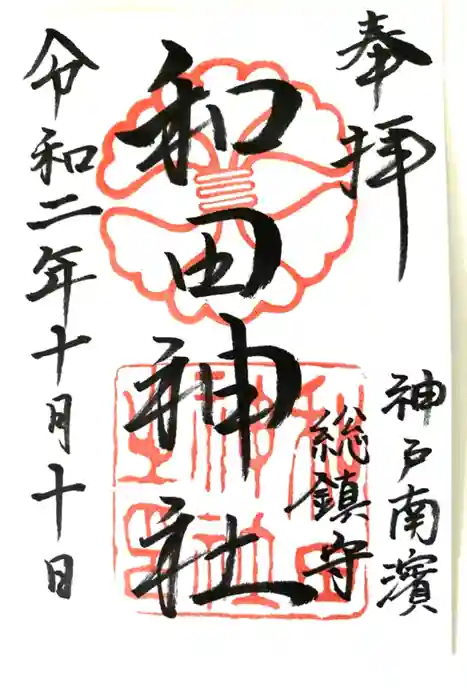 奉拝
神戸南濱
総鎮守
和田神社
令和二年十月十日